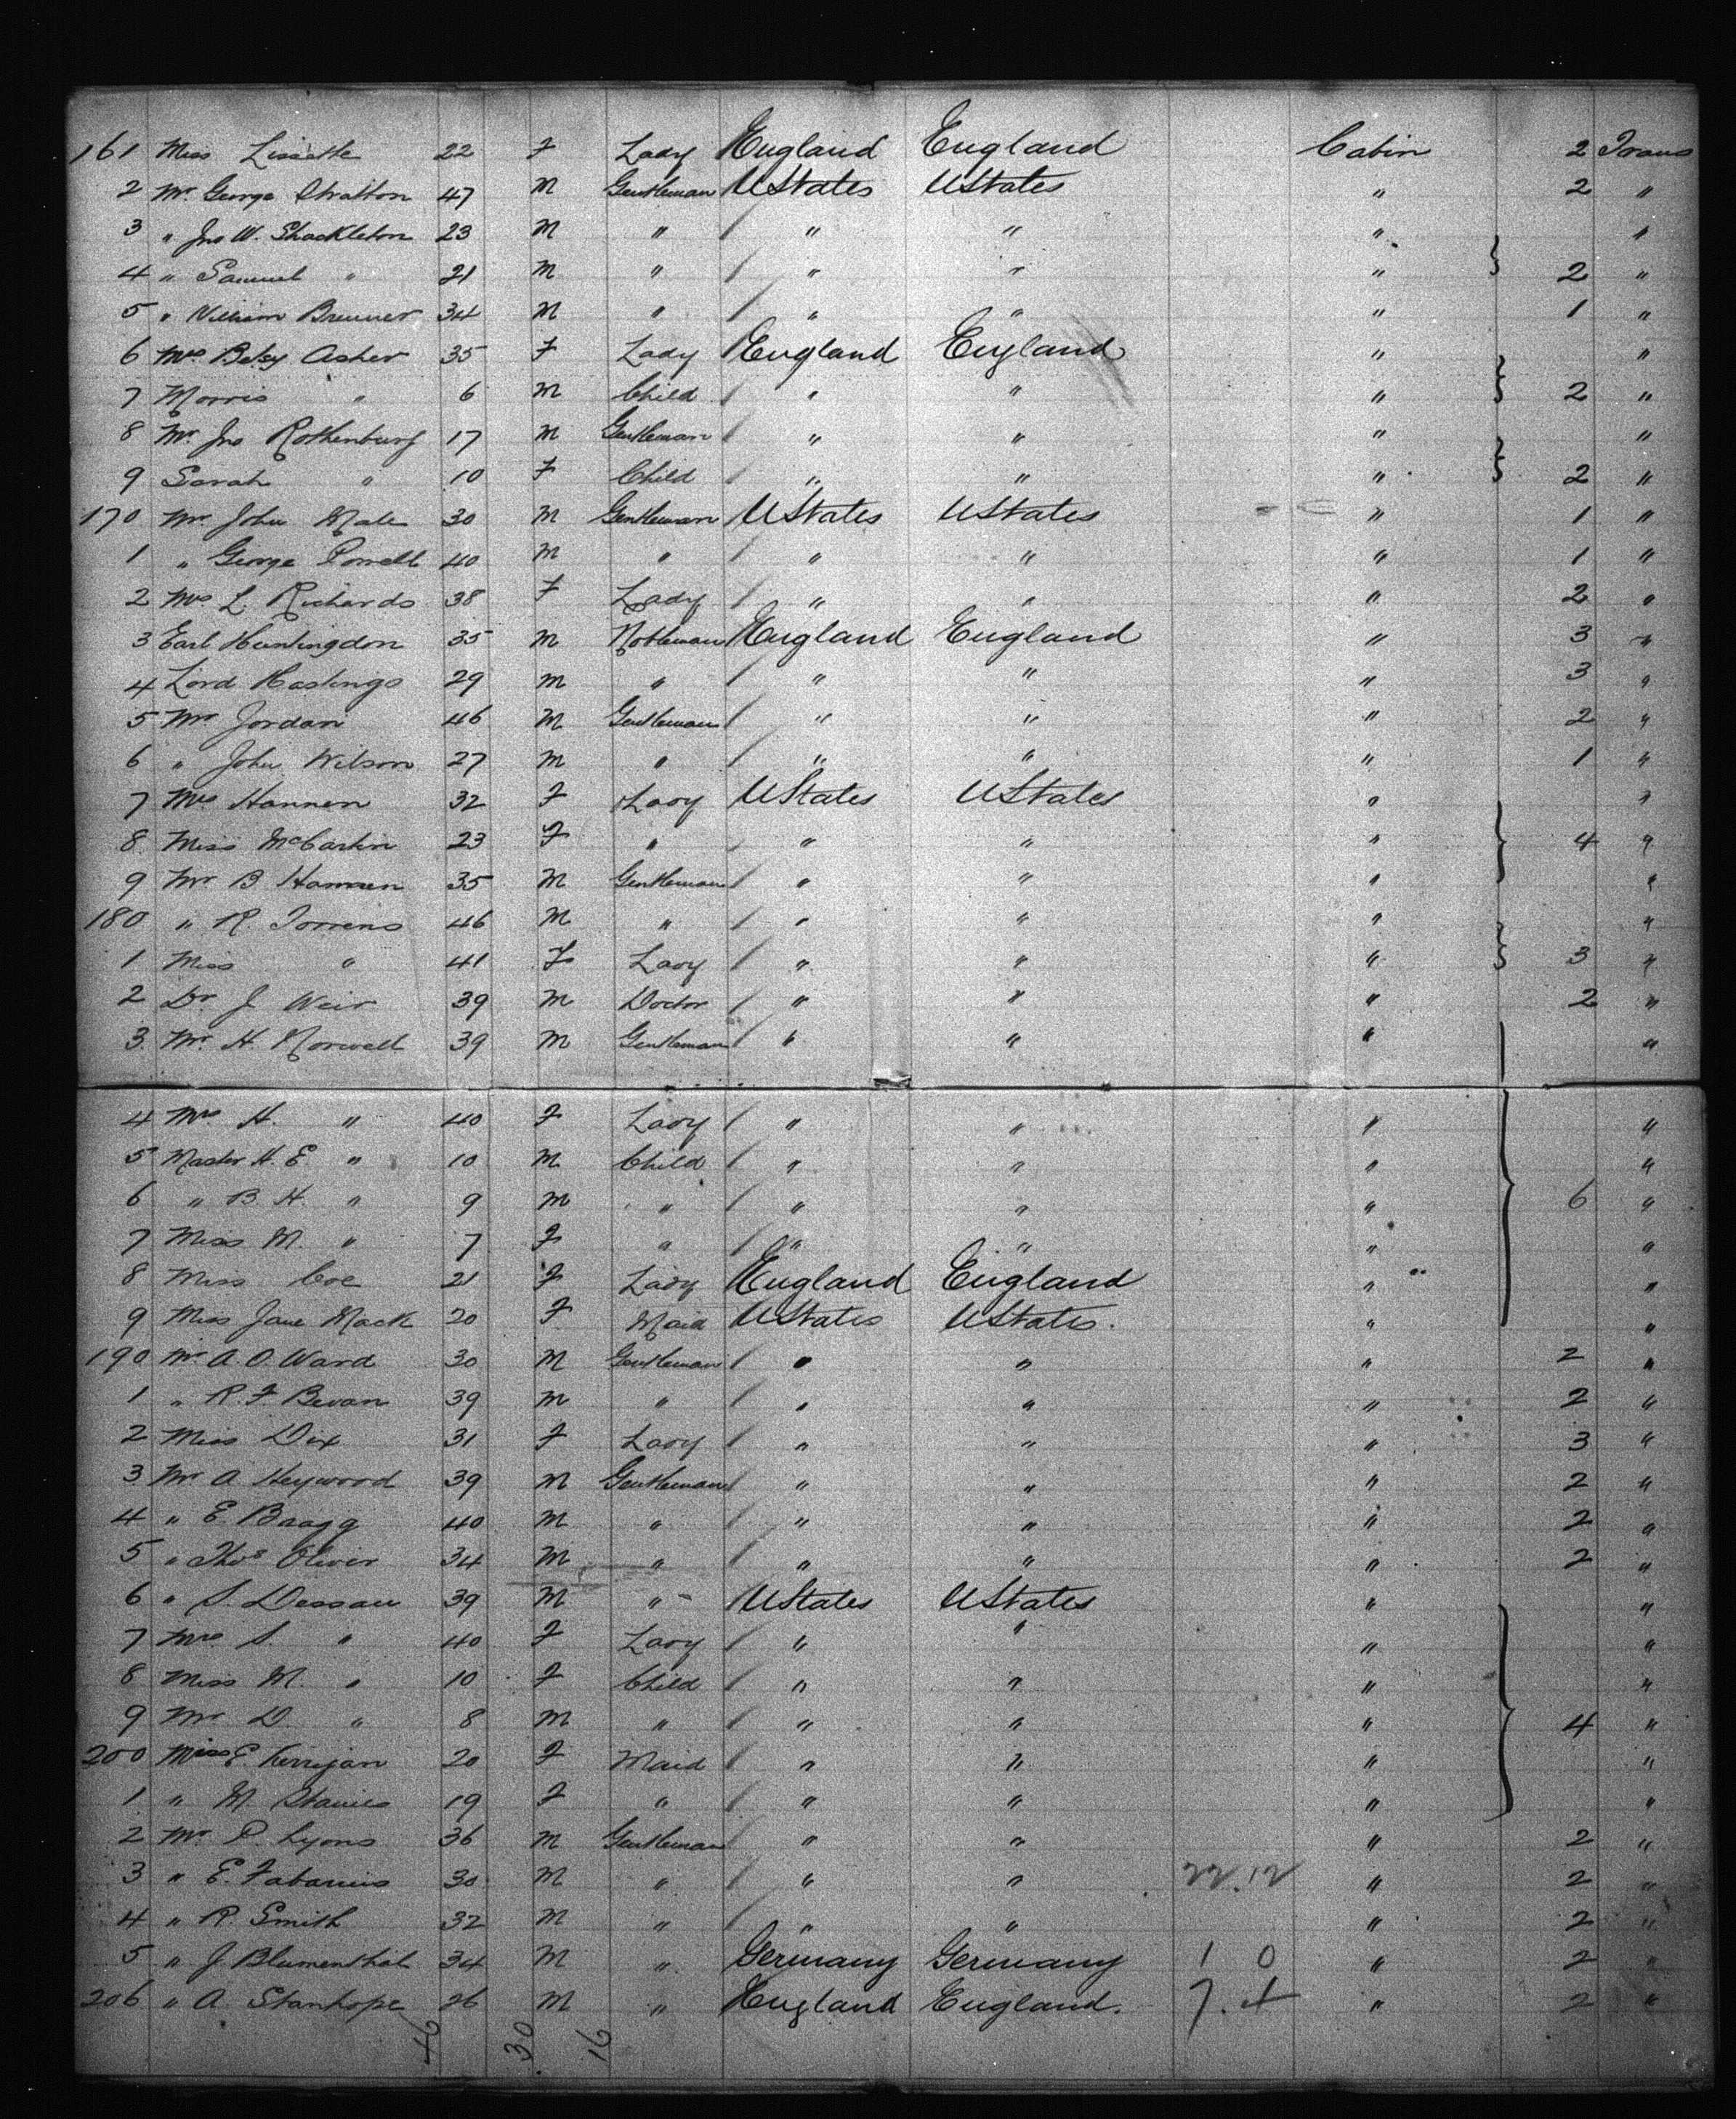 161 Miss Lissette 22 F Lady England England Cabin 2 Trans
2 Mr. George Stratton 47 M Gentleman UStates UStates " 2 "
3 " Jno W. Shackleton 23 M " " " " "
4 " Samuel " 21 M " " " " 2 "
5 " William Brenner 34 M " " " " 1 "
6 Mrs Betsy Asher 35 F Lady England England " "
7 Morris " 6 M Child " " " 2 "
8 Mr. Jno Rothenburg 17 M Gentleman " " " "
9 Sarah " 10 F Child " " " 2 "
170 Mr John Male 30 M Gentleman UStates UStates " 1 "
1 " George Powell 40 M " " " " 1 "
2 Mrs L. Richards 38 F Lady " " " 2 "
3 Earl Huntingdon 35 M Nobleman England England " 3 "
4 Lord Hastings 29 M " " " " 3 "
5 Mr Jordan 46 M Gentleman " " " 2 "
6 " John Wilson 27 M " " " " 1 "
7 Mrs Hannen 32 F Lady UStates UStates " "
8 Miss McCartin 23 F " " " " 4 "
9 Mr B Hannen 35 M Gentleman " " " "
180 " R. Torrens 46 M " " " " "
1 Miss " 41 F Lady " " " 3 "
2 Dr J Weir 39 M Doctor " " " 2 "
3 Mr. H. Norwell 39 M Gentleman " " " "
4 Mrs H. " 40 F Lady " " " "
5 Master H. E " 10 M Child " " " "
6 " B. H. " 9 M " " " " 6 "
7 Miss M. " 7 F " " " " "
8 Miss Coe 21 F Lady England England " "
9 Miss Jane Mack 20 F Maid UStates UStates. " "
190 Mr A. O. Ward 30 M Gentleman " " " 2 "
1 " R. F Bevan 39 M " " " " 2 "
2 Miss Dix 31 F Lady " " " 3 "
3 Mr A Heywood 39 M Gentleman " " " 2 "
4 " E. Baagg 40 M " " " " 2 "
5 " Thos Oliver 34 M " " " " 2 "
6 " S. Dessau 39 M " UStates UStates " "
7 Mrs S. " 40 F Lady " " " "
8 Miss M. " 10 F Child " " " "
9 Mr D. " 8 M " " " " 4 "
200 Miss E. Kerrigan 20 F Maid " " " "
1 " M. 19 F " " " " "
2 Mr. P. Lyons 36 M Gentleman " " " 2 "
3 " E. 30 M " " " 22.12 " 2 "
4 " R. Smith 32 M " " " " 2 "
5 " J Blumenthal 34 M " Germany Germany 1 0 " 2 "
206 " A. Stanhope 26 M " England England. 7. 4 " 2 "
46 30 16